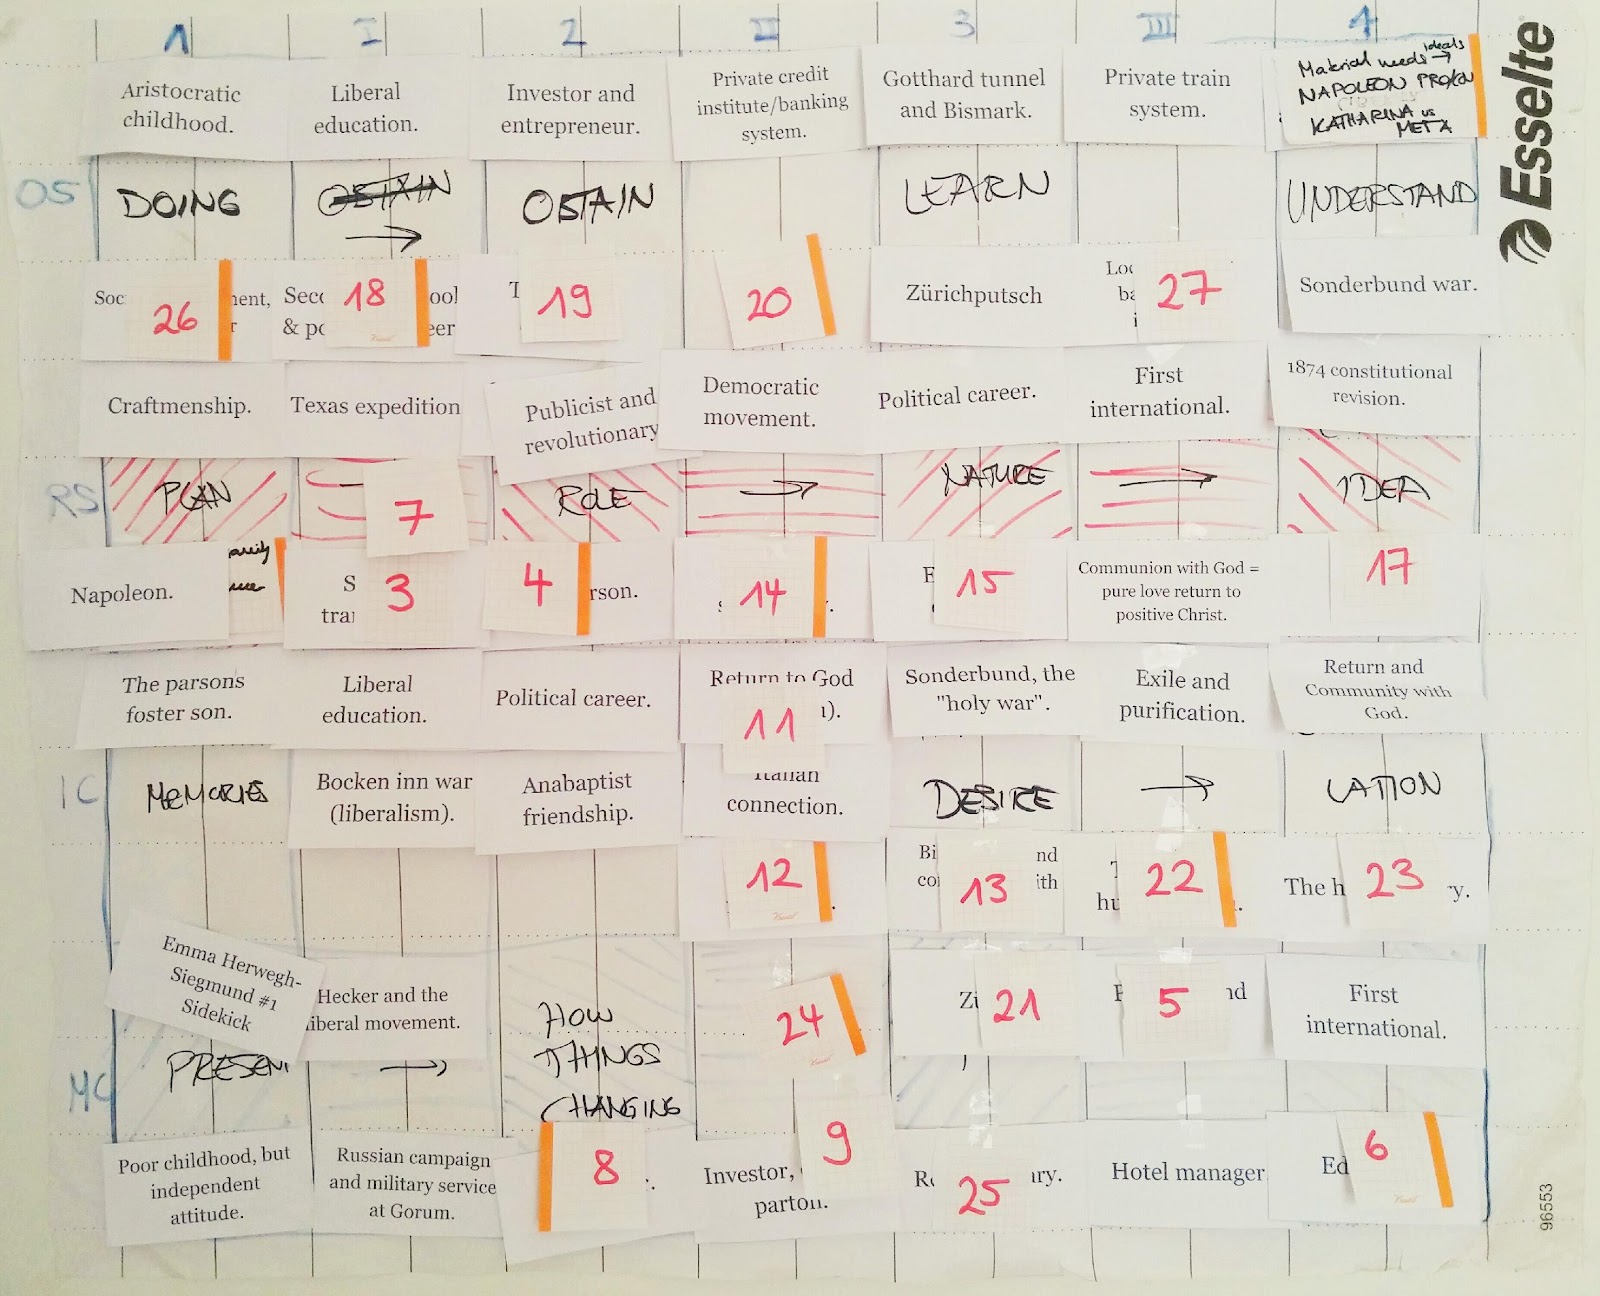 1 I 2 II 3 III 4
Aristocratic
childhood.
Liberal
education.
Investor and
entrepreneur.
Private credit
institute/banking
system.
Gotthard tunnel
and Bismark.
Private train
system.
ideals
Material needs →
NAPOLEON PRO/KON
KATHARINA vs
META
Esselte
OS
DOING
OBTAIN
→
OBTAIN
LEARN
UNDERSTAND
Soc
26
ment,
r
Seco
18
ool
& po
eer
T
19
20
Zürichputsch
Loc
ba
i
27
Sonderbund war.
Craftmenship.
Texas expedition
Publicist and
revolutionary
Democratic
movement.
Political career.
First
international.
1874 constitutional
revision.
RS
PLAN
7
ROLE
→
NATURE
→
IDEA
Napoleon.
S
3
trai
4
rson.
14
E
15
Communion with God =
pure love return to
positive Christ.
17
The parsons
foster son.
Liberal
education.
Political career.
Return to God
11
1).
Sonderbund, the
"holy war".
Exile and
purification.
Return and
Community with
God.
IC
MEMORIES
Bocken inn war
(liberalism).
Anabaptist
friendship.
Italian
connection.
DESIRE
→
LATION
12
Bi
nd
co
13
ith
T
22
hu
The h
23
y.
Emma Herwegh-
Siegmund #1
Sidekick
Hecker and the
liberal movement.
HOW
THINGS
CHANGING
24
Zi
21
5
nd
First
international.
MC
PRESENT
→
Poor childhood, but
independent
attitude.
Russian campaign
and military service
at Gorum.
8
9
Investor,
parton.
R
25
ry.
Hotel manager
Ed
6
96553